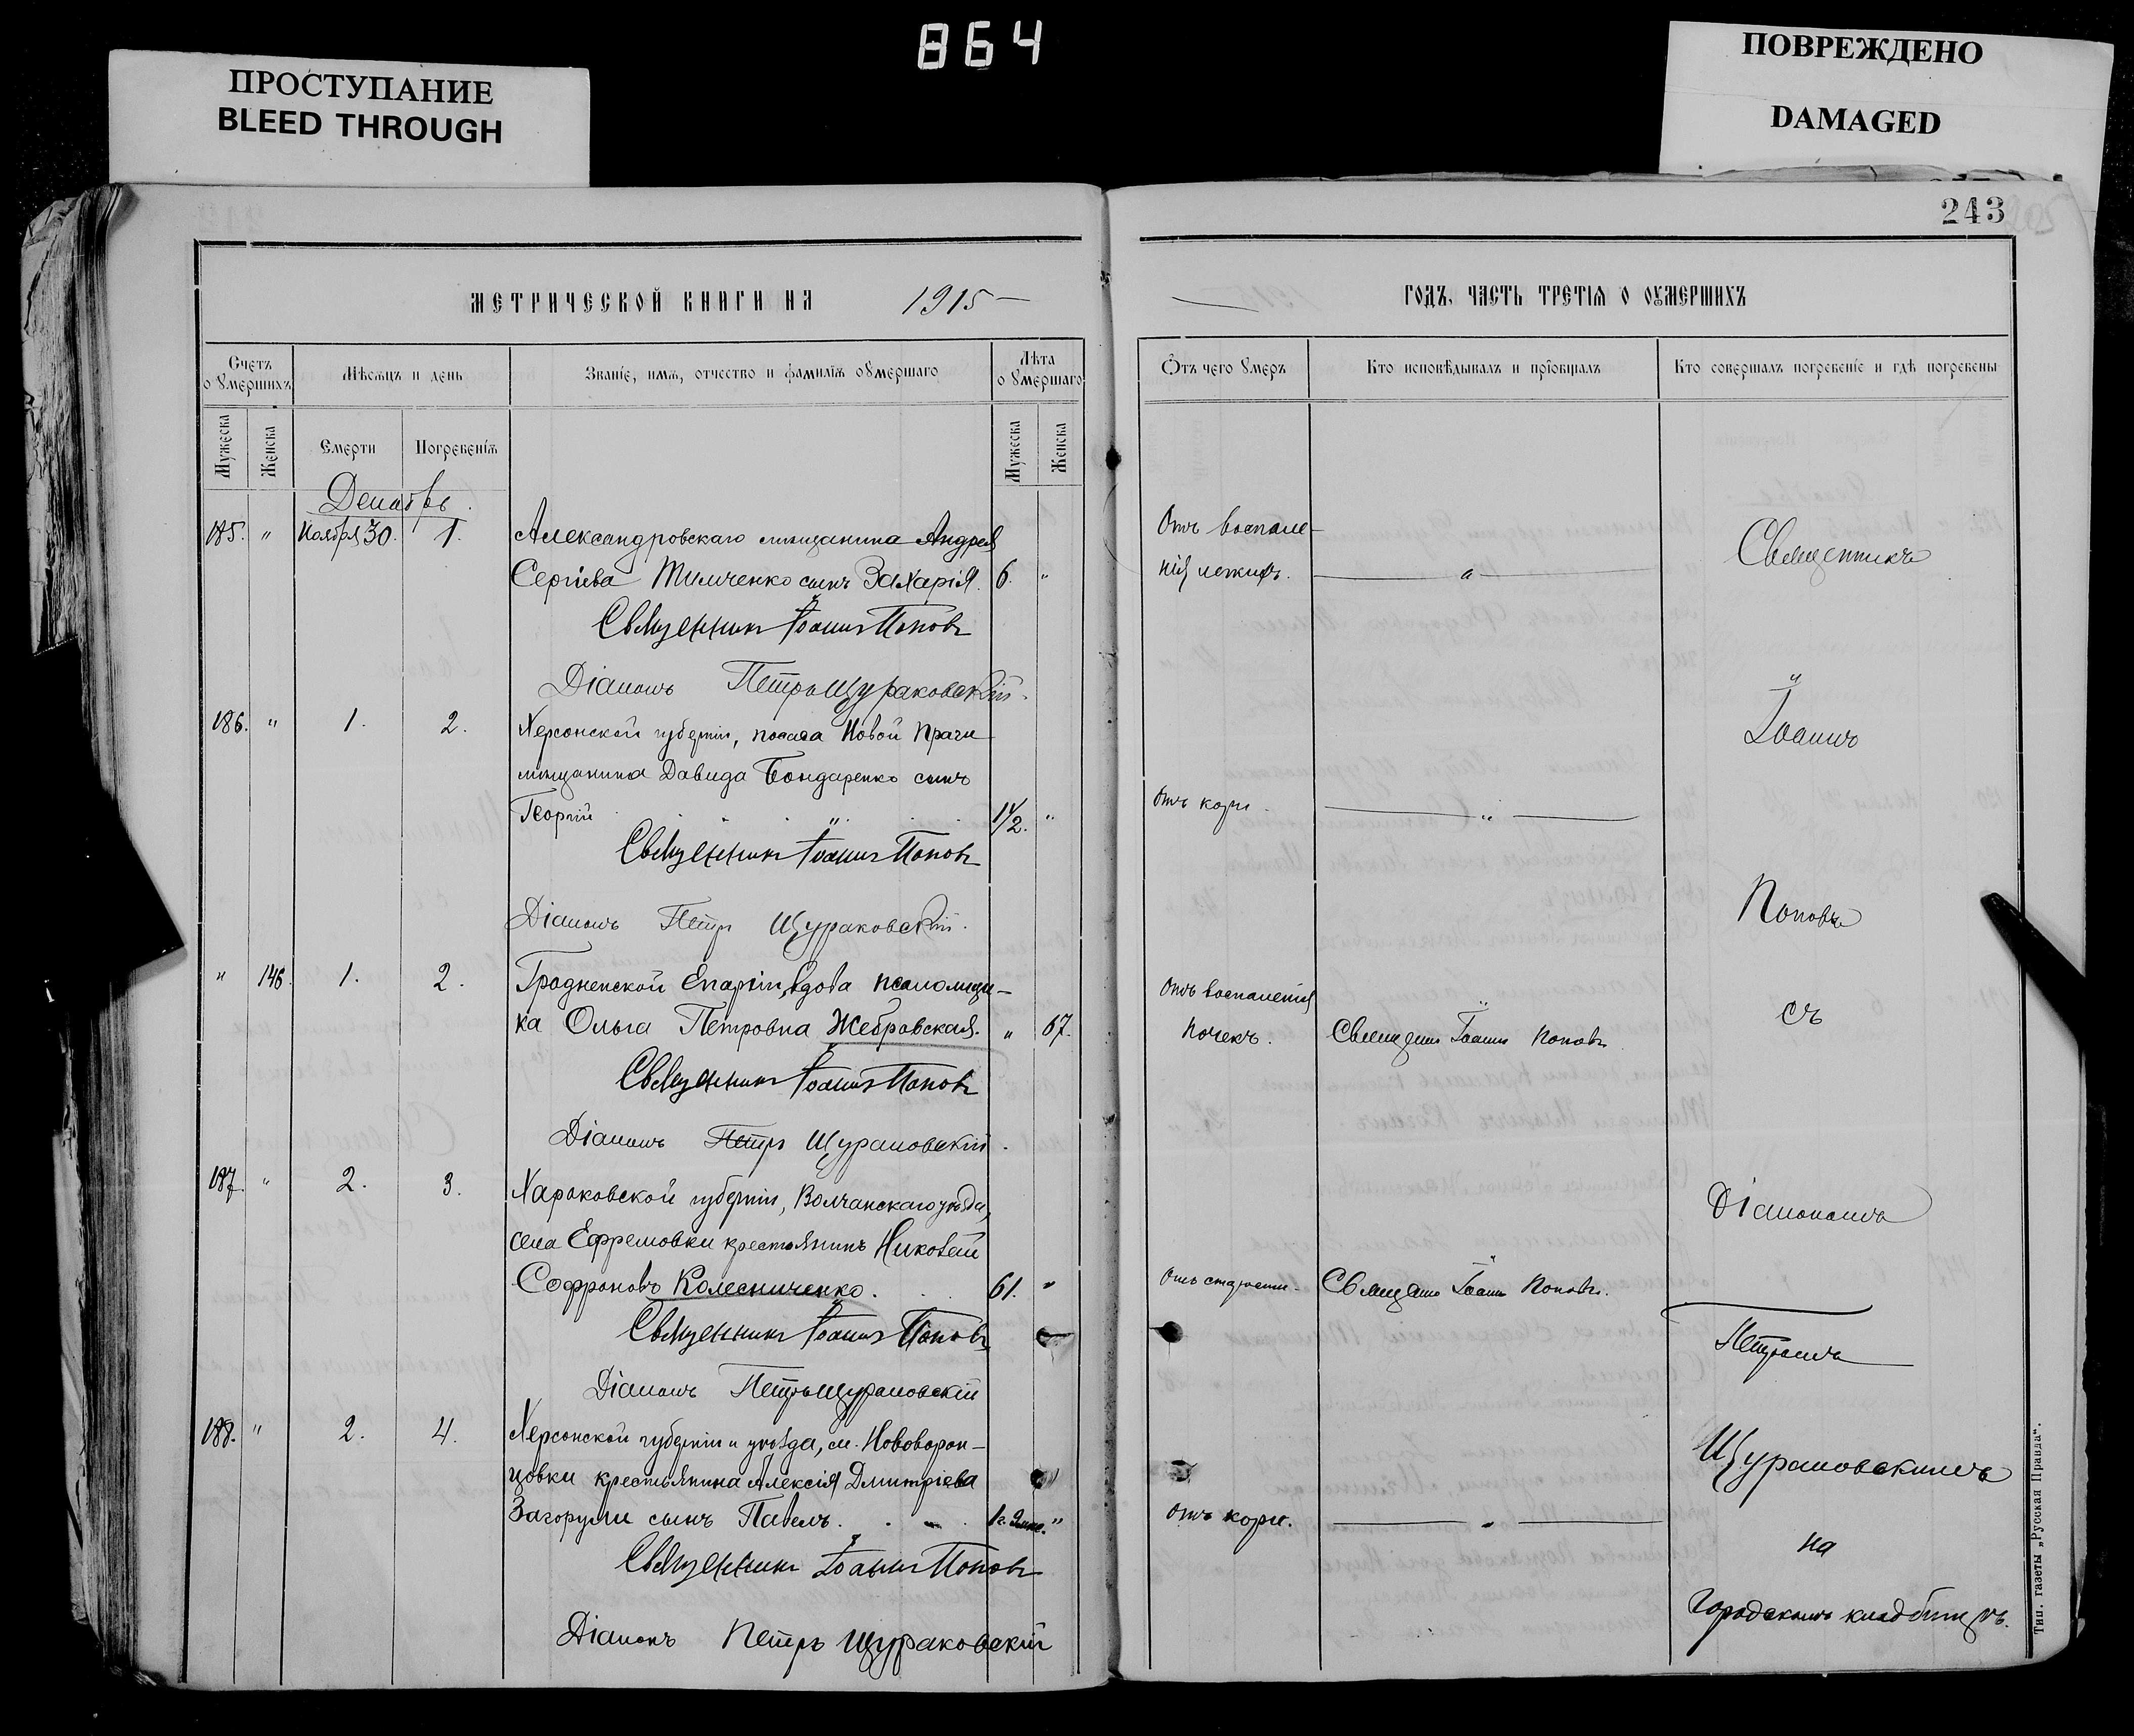 864
ПРОСТУПАНИЕ
BLEED THROUGH
ПОВРЕЖДЕНО
DAMAGED
243
МЕТРИЧЕСКОЙ КНИГИ НА 1915 —
Счетъ оумершихъ
Мѣсяцъ и день
Званіе, имя, отчество и фамилія оумершаго
Лѣта оумершаго
Мужеска
Женска
Смерти
Погребенія
Мужеска
Женска
Декабрь.
185. " Ноября 30. 1. Александровскаго мѣщанина Андрея
Сергіева Тимченко сынъ Захарія. 6. "
Священникъ Іоаннъ Поповъ
Діаконъ Петръ Щураковскій.
186. " 1. 2. Херсонской губерніи, посада Новой Праги
мѣщанина Давида Бондаренко сынъ
Георгій . . " . . 1 1/2. "
Священникъ Іоаннъ Поповъ
Діаконъ Петръ Щураковскій.
" 146. 1. 2. Гродненской Епархіи, вдова псаломщи-
ка Ольга Петровна Жебровская. " 67.
Священникъ Іоаннъ Поповъ
Діаконъ Петръ Щураковскій.
187. " 2. 3. Харьковской губерніи, Волчанскаго уѣзда,
села Ефремовки крестьянинъ Николай
Софроновъ Колесниченко. . . 61. "
Священникъ Іоаннъ Поповъ
Діаконъ Петръ Щураковскій
188. " 2. 4. Херсонской губерніи и уѣзда, м. Нововорон-
цовки крестьянина Алексія Дмитріева
Загорули сынъ Павелъ. . - . "
Священникъ Іоаннъ Поповъ
Діаконъ Петръ Щураковскій
ГОДЪ, ЧАСТЬ ТРЕТІЯ О ОУМЕРШИХЪ
Отъ чего умеръ
Кто исповѣдывалъ и пріобщалъ
Кто совершалъ погребеніе и гдѣ погребены
Отъ воспале-
нія легкихъ.
Отъ кори.
Отъ воспаленія
почекъ. Священ. Іоаннъ Поповъ
Отъ старости. Священ. Іоаннъ Поповъ.
Отъ кори.
Священникъ
Іоаннъ
Поповъ
съ
Діакономъ
Петромъ
Щураковскимъ
на
Городскомъ кладбищѣ.
Тип. газеты „Русская Правда".